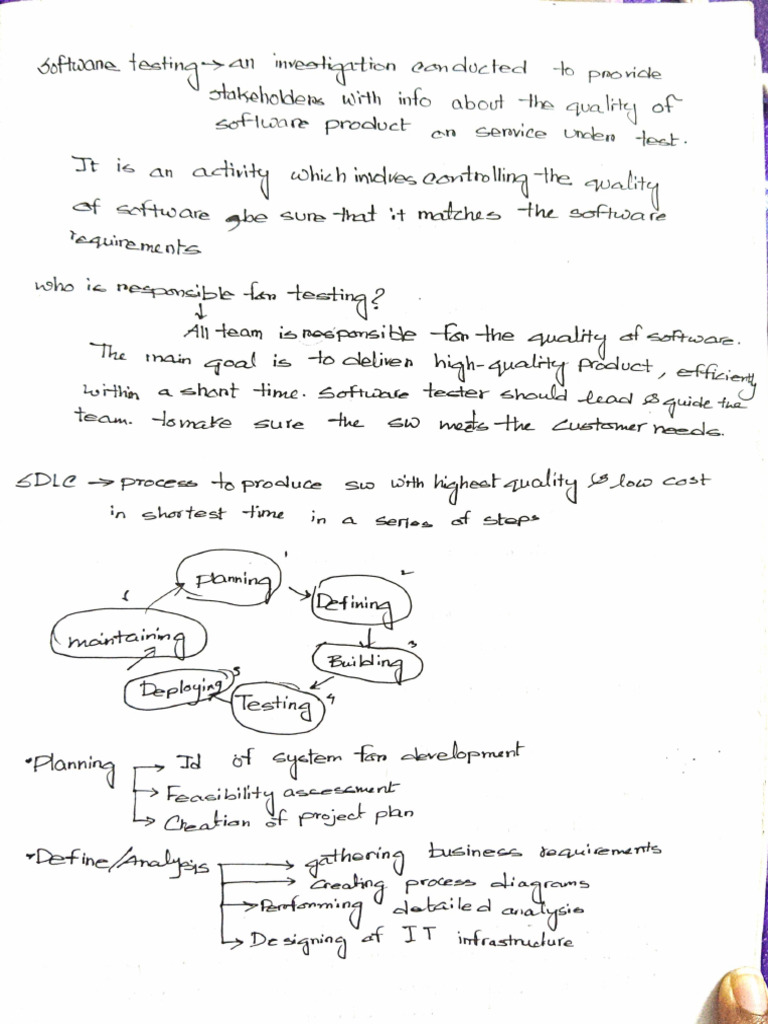 Software testing → an investigation conducted to provide
stakeholders with info about the quality of
software product or service under test.
It is an activity which involves controlling the quality
of software be sure that it matches the software
requirements
who is responsible for testing?
↓
All team is responsible for the quality of software.
The main goal is to deliver high-quality product, efficiently
within a short time. Software tester should lead & guide the
team. to make sure the SW meets the customer needs.
SDLC → process to produce sw with highest quality & low cost
in shortest time in a series of steps
Planning 1
Defining 2
Building 3
Testing 4
Deploying 5
maintaining
• Planning → Id of system for development
→ Feasibility assessment
→ Creation of project plan
• Define/Analysis → gathering business requirements
→ creating process diagrams
→ Performing detailed analysis
→ Designing of IT infrastructure